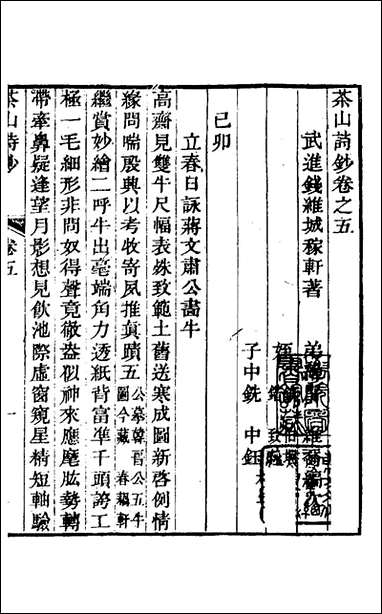 茶山詩鈔卷之五
武進錢維城稼軒著
弟維喬
子中銑　中鈺
己卯
立春日詠蔣文肅公畫牛
高齋見雙牛尺幅表姝致範土舊送寒成圖新啓例情
緣問喘殷興以考收寄夙推眞蹟五公摹韓晋公五牛圖今藏春藕軒
繼賞妙繪二呼牛出毫端角力透紙背富準千頭誇工
極一毛細形非問奴得聲竟儆盎似神來應麾肱勢轉
帶牽鼻疑逢望月影想見飲池際虛窗窺星精短軸驗
茶山詩鈔　卷五　一